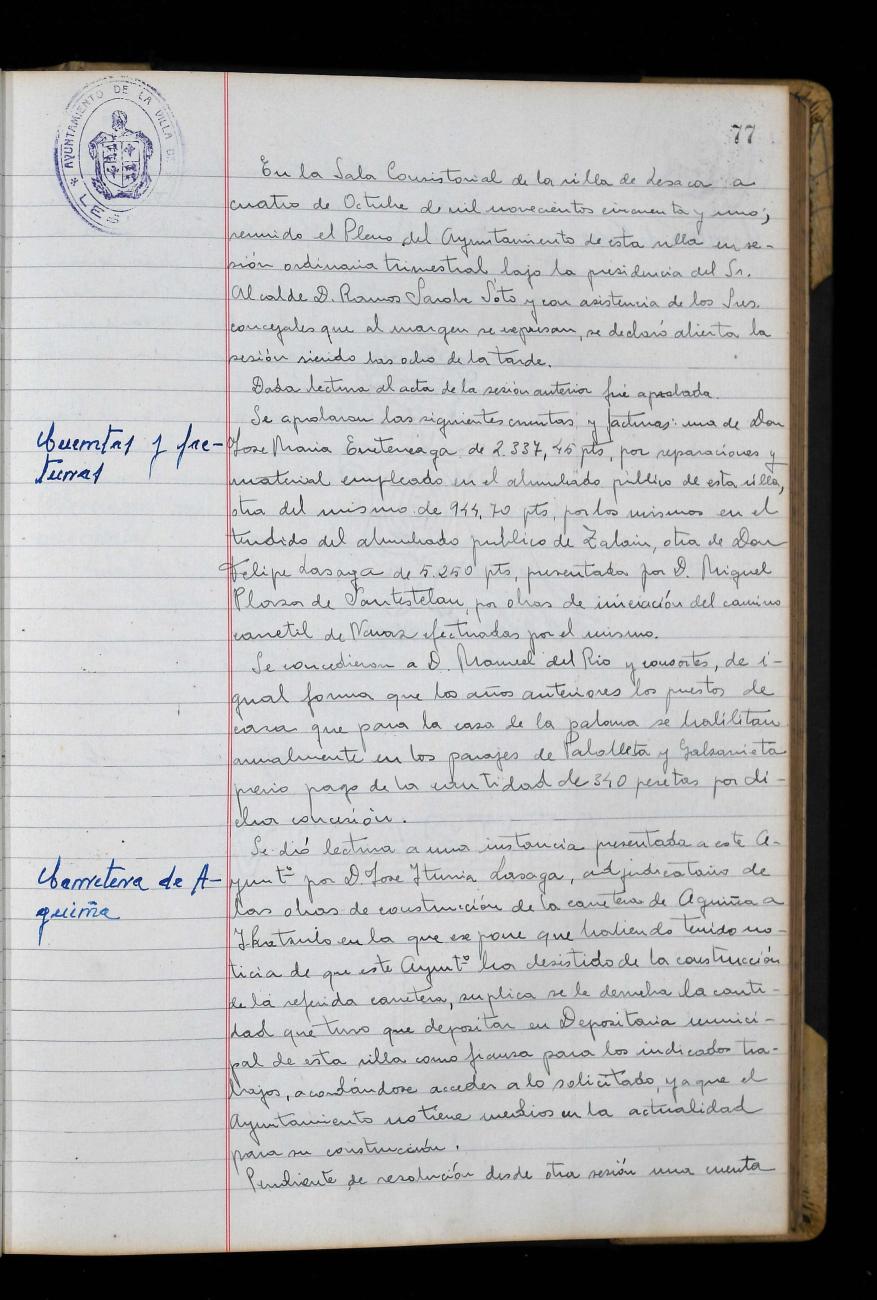 AYUNTAMIENTO DE LA VILLA DE
LES
77
En la Sala Consistorial de la villa de Lesaca a
cuatro de Octubre de mil novecientos cincuenta y uno;
reunido el Pleno del Ayuntamiento de esta villa en se-
sión ordinaria trimestral bajo la presidencia del Sr.
Alcalde D. Ramos Sarobe Soto y con asistencia de los Sres.
concejales que al margen se expresan, se declaró abierta la
sesión siendo las ocho de la tarde.
Dada lectura al acta de la sesión anterior fué aprobada.
Cuentas y fac-
turas
Se aprobaron las siguientes cuentas y facturas: una de Don
Jose Maria de 2.337,45 pts, por reparaciones y
material empleado en el alumbrado público de esta villa,
otra del mismo de 944,70 pts, por los mismos en el
tendido del alumbrado publico de Zalain, otra de Don
Felipe Lasaga de 5.250 pts, presentada por D. Miguel
Plaza de Santesteban, por obras de iniciación del camino
carretil de Navaz efectuadas por el mismo.
Se concedieron a D. Manuel del Rio y consortes, de i-
gual forma que los años anteriores los puestos de
caza que para la caza de la paloma se habilitan
anualmente en los parajes de y
previo pago de la cantidad de 340 pesetas por di-
cha concesión.
Carretera de A-
guiña
Se dió lectura a una instancia presentada a este A-
yuntº por D. Jose Iturria Lasaga, adjudicatario de
las obras de construcción de la carretera de Aguiña a
en la que expone que habiendo tenido no-
ticia de que este Ayuntº ha desistido de la construcción
de la referida carretera, suplica se le devuelva la canti-
dad que tuvo que depositar en Depositaria munici-
pal de esta villa como fianza para los indicados tra-
bajos, acordándose acceder a lo solicitado, ya que el
Ayuntamiento no tiene medios en la actualidad
para su construcción.
Pendiente de resolución desde otra sesión una cuenta